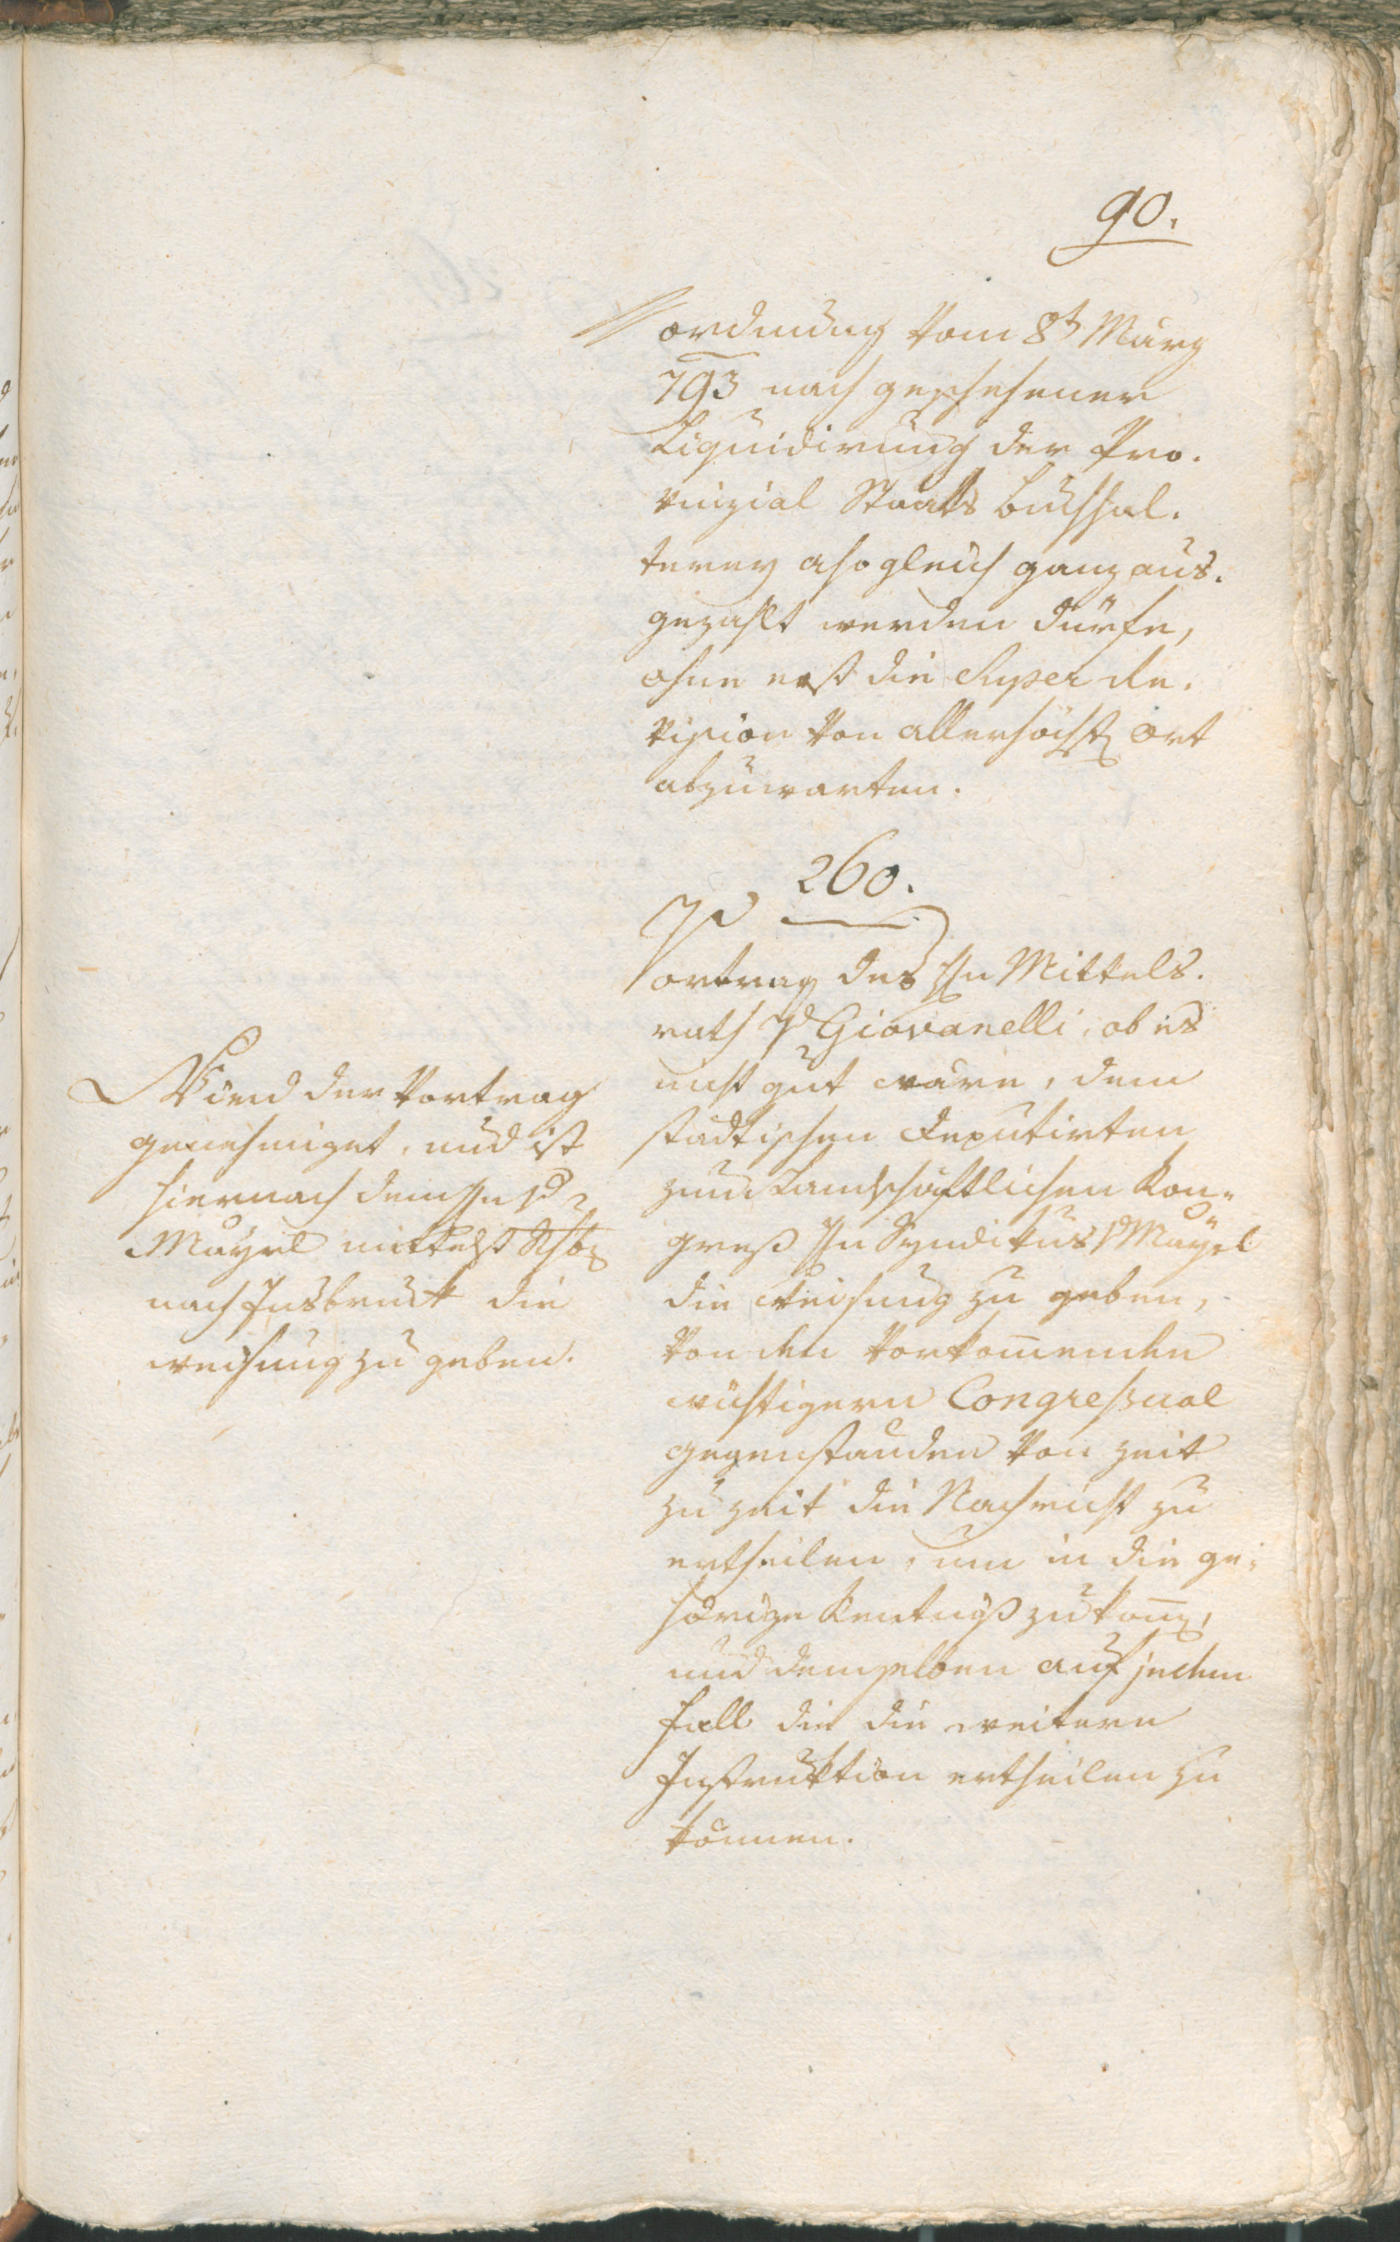 90.
ordnung vom 8t März
793 nach geschehener
Liquidirung der Pro.
vinzial Staats Buchhal.
terey alsogleich ganz aus.
gezahlt werden dürfe,
ohne erst die Super Re.
vision von allerhöchst Ort
abzuwarten.
260.
Vortrag des Hn Mittels.
rath v Giovanelli, ob es
nicht gut wäre, dem
stadtischen Deputirten
zum Landschäftlichen Kon-
greß Hn Syndikus v Mayrl
die Weisung zu geben,
von den vorkom̅enden
wichtigern Congressual
gegenständen von zeit
zu zeit die Nachricht zu
ertheilen, um in die ge-
hörige Kentniß zu kom̅,
und demselben auf jeden
fall die die weitere
Instruktion ertheilen zu
können.
Wird der Vortrag
genehmiget, und ist
hiernach dem Hn v
Mayrl mittelst Schb
nach Insbruck die
weisung zu geben.